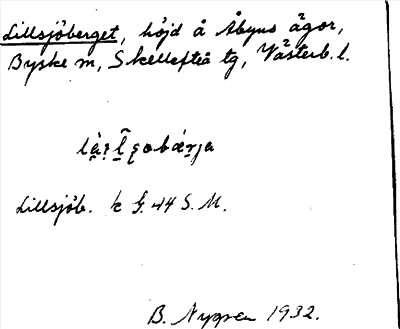 Lillsjöberget, höjd å Åbyns ägor,
Byske m, Skellefteå tg, Västerb. l.
Lillsjöb. k f. 44 S. M.
B. Nygren 1932.